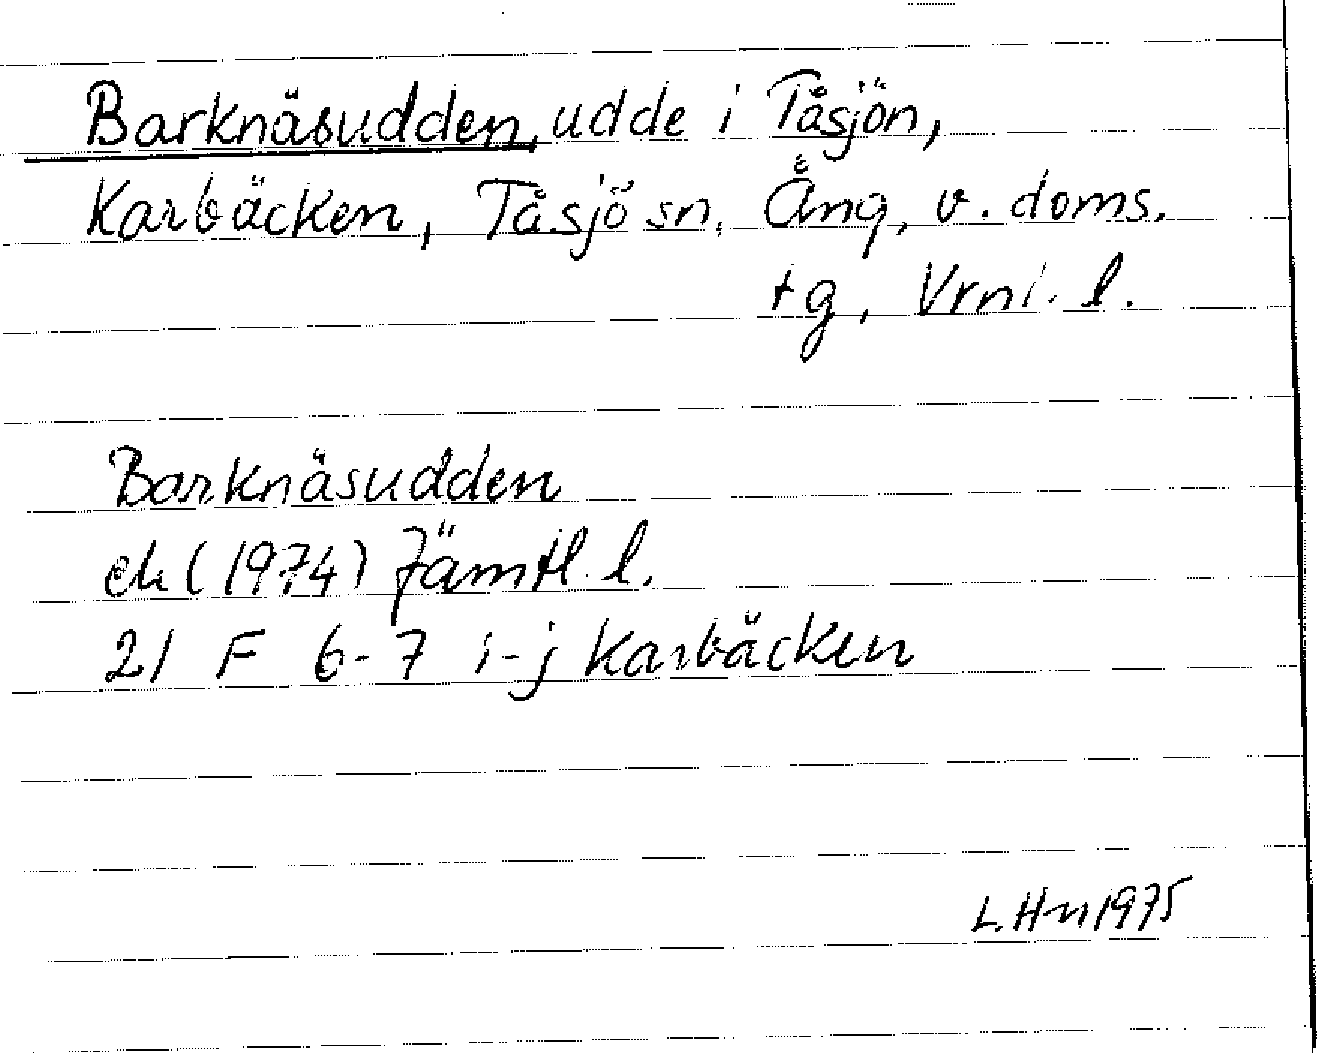 Barknäsudden, udde i Tåsjön,
Karbäcken, Tåsjö sn, Ång, v. doms.
tg, Vrnl. l.
Barknäsudden
ek (1974) Jämtl. l.
21 F 6-7 i-j Karbäcken
L. Hn 1975